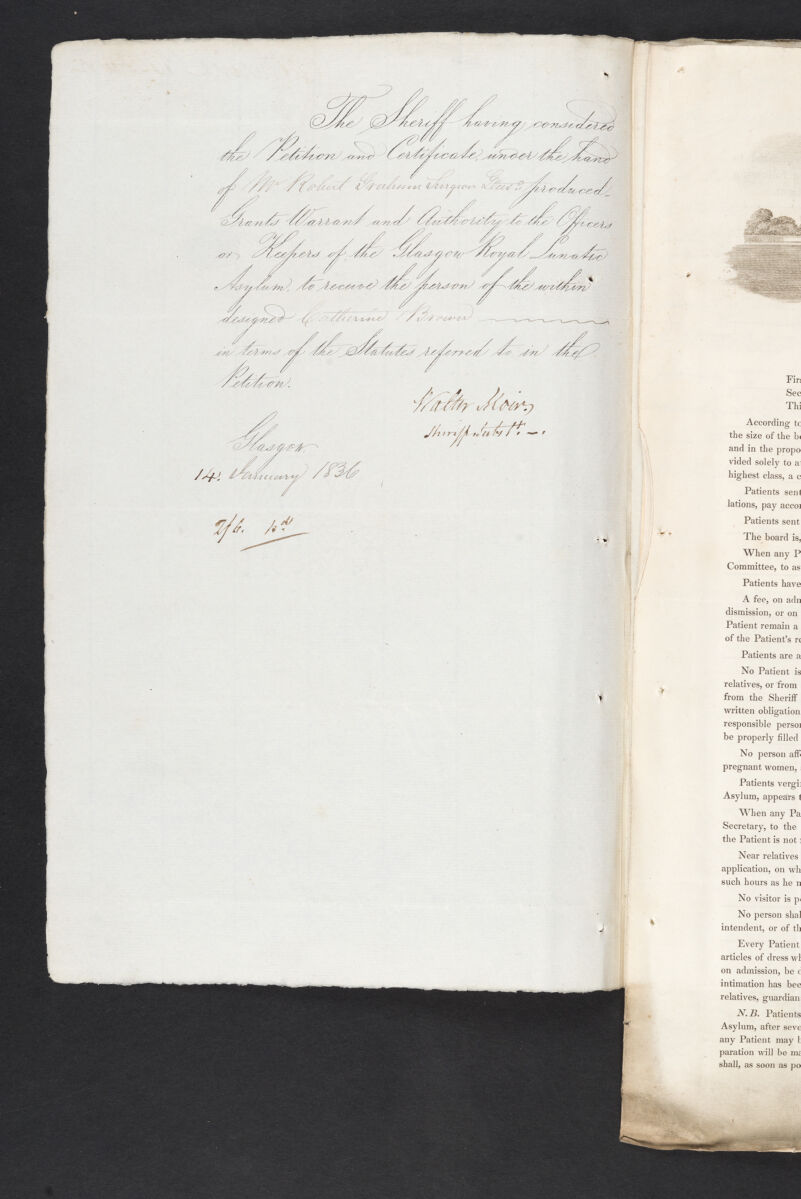 The Sheriff having considered
the Petition and Certificate under the hand
of Mr Robert Graham Surgeon produced
Grants Warrant and Authority to the Officers
or Keepers of the Glasgow Royal Lunatic
Asylum, to receive the person of the within
designed Catherine Brewer
in terms of the Statutes referred to in the
Petition.
Walter Moir
Sheriff Subst.
Glasgow
14 January 1836
2/6. pd
Fir
Sec
Thi
According to
the size of the b
and in the propo
vided solely to a
highest class, a c
Patients sent
lations, pay accor
Patients sent
The board is,
When any P
Committee, to as
Patients have
A fee, on adm
dismission, or on
Patient remain a
of the Patient's re
Patients are a
No Patient is
relatives, or from
from the Sheriff
written obligation
responsible person
be properly filled
No person affe
pregnant women,
Patients vergi
Asylum, appears t
When any Pa
Secretary, to the
the Patient is not
Near relatives
application, on wh
such hours as he m
No visitor is pe
No person shal
intendent, or of th
Every Patient
articles of dress wh
on admission, be c
intimation has bee
relatives, guardian
N. B. Patients
Asylum, after seve
any Patient may b
paration will be ma
shall, as soon as po